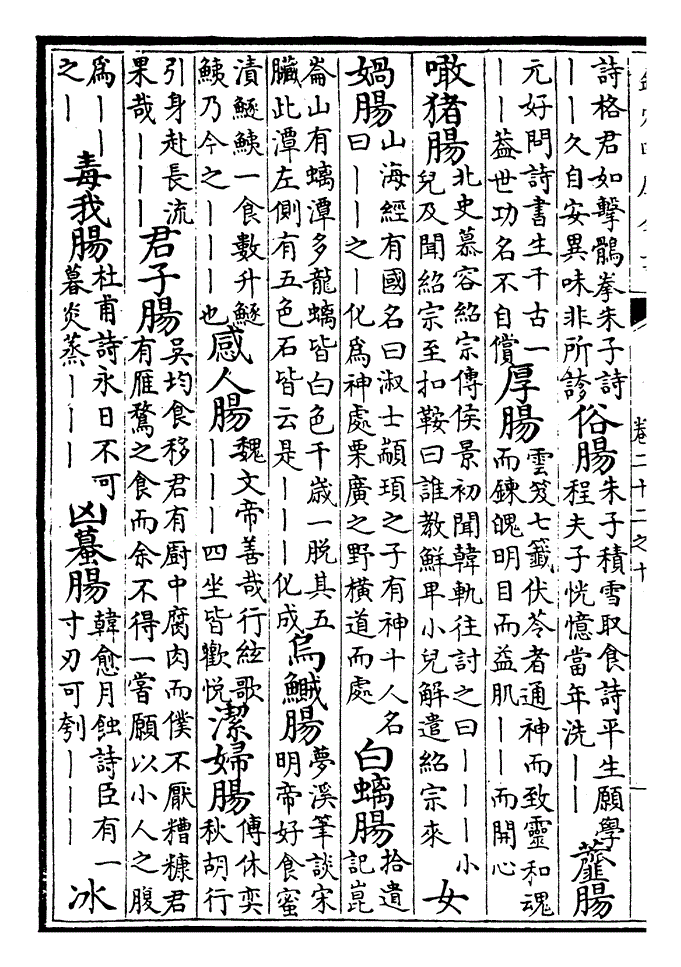 卷二十二之十
詩格君如擊鶻拳朱子詩
——久自安異味非所診
俗腸
朱子積雪取食詩平生願學
程夫子恍憶當年洗——
虀腸
元好問詩書生千古一
——葢世功名不自償
厚腸
雲笈七籤伏苓者通神而致靈和魂
而鍊魄明目而益肌——而開心
噉猪腸
北史慕容紹宗傳侯景初聞韓軌往討之曰———小
兒及聞紹宗至扣鞍曰誰教鮮卑小兒解遣紹宗來
女
媧腸
山海經有國名曰淑士顓頊之子有神斗人名
曰——之—化為神處栗廣之野橫道而處
白螭腸
拾遺
記崑
崙山有螭潭多龍螭皆白色千歲一脫其五
臟此潭左側有五色石皆云是———化成
烏鱡腸
夢溪筆談宋
明帝好食蜜
漬鱁鮧一食數升鱁
鮧乃今之———也
感人腸
魏文帝善哉行絃歌
———四坐皆歡悅
潔婦腸
傅休奕
秋胡行
引身赴長流
果哉———
君子腸
吳均食移君有厨中腐肉而僕不厭糟糠君
有雁鶩之食而余不得一嘗願以小人之腹
為——
之—
毒我腸
杜甫詩永日不可
暮炎蒸———
凶蟇腸
韓愈月蝕詩臣有一
寸刃可刳———
冰